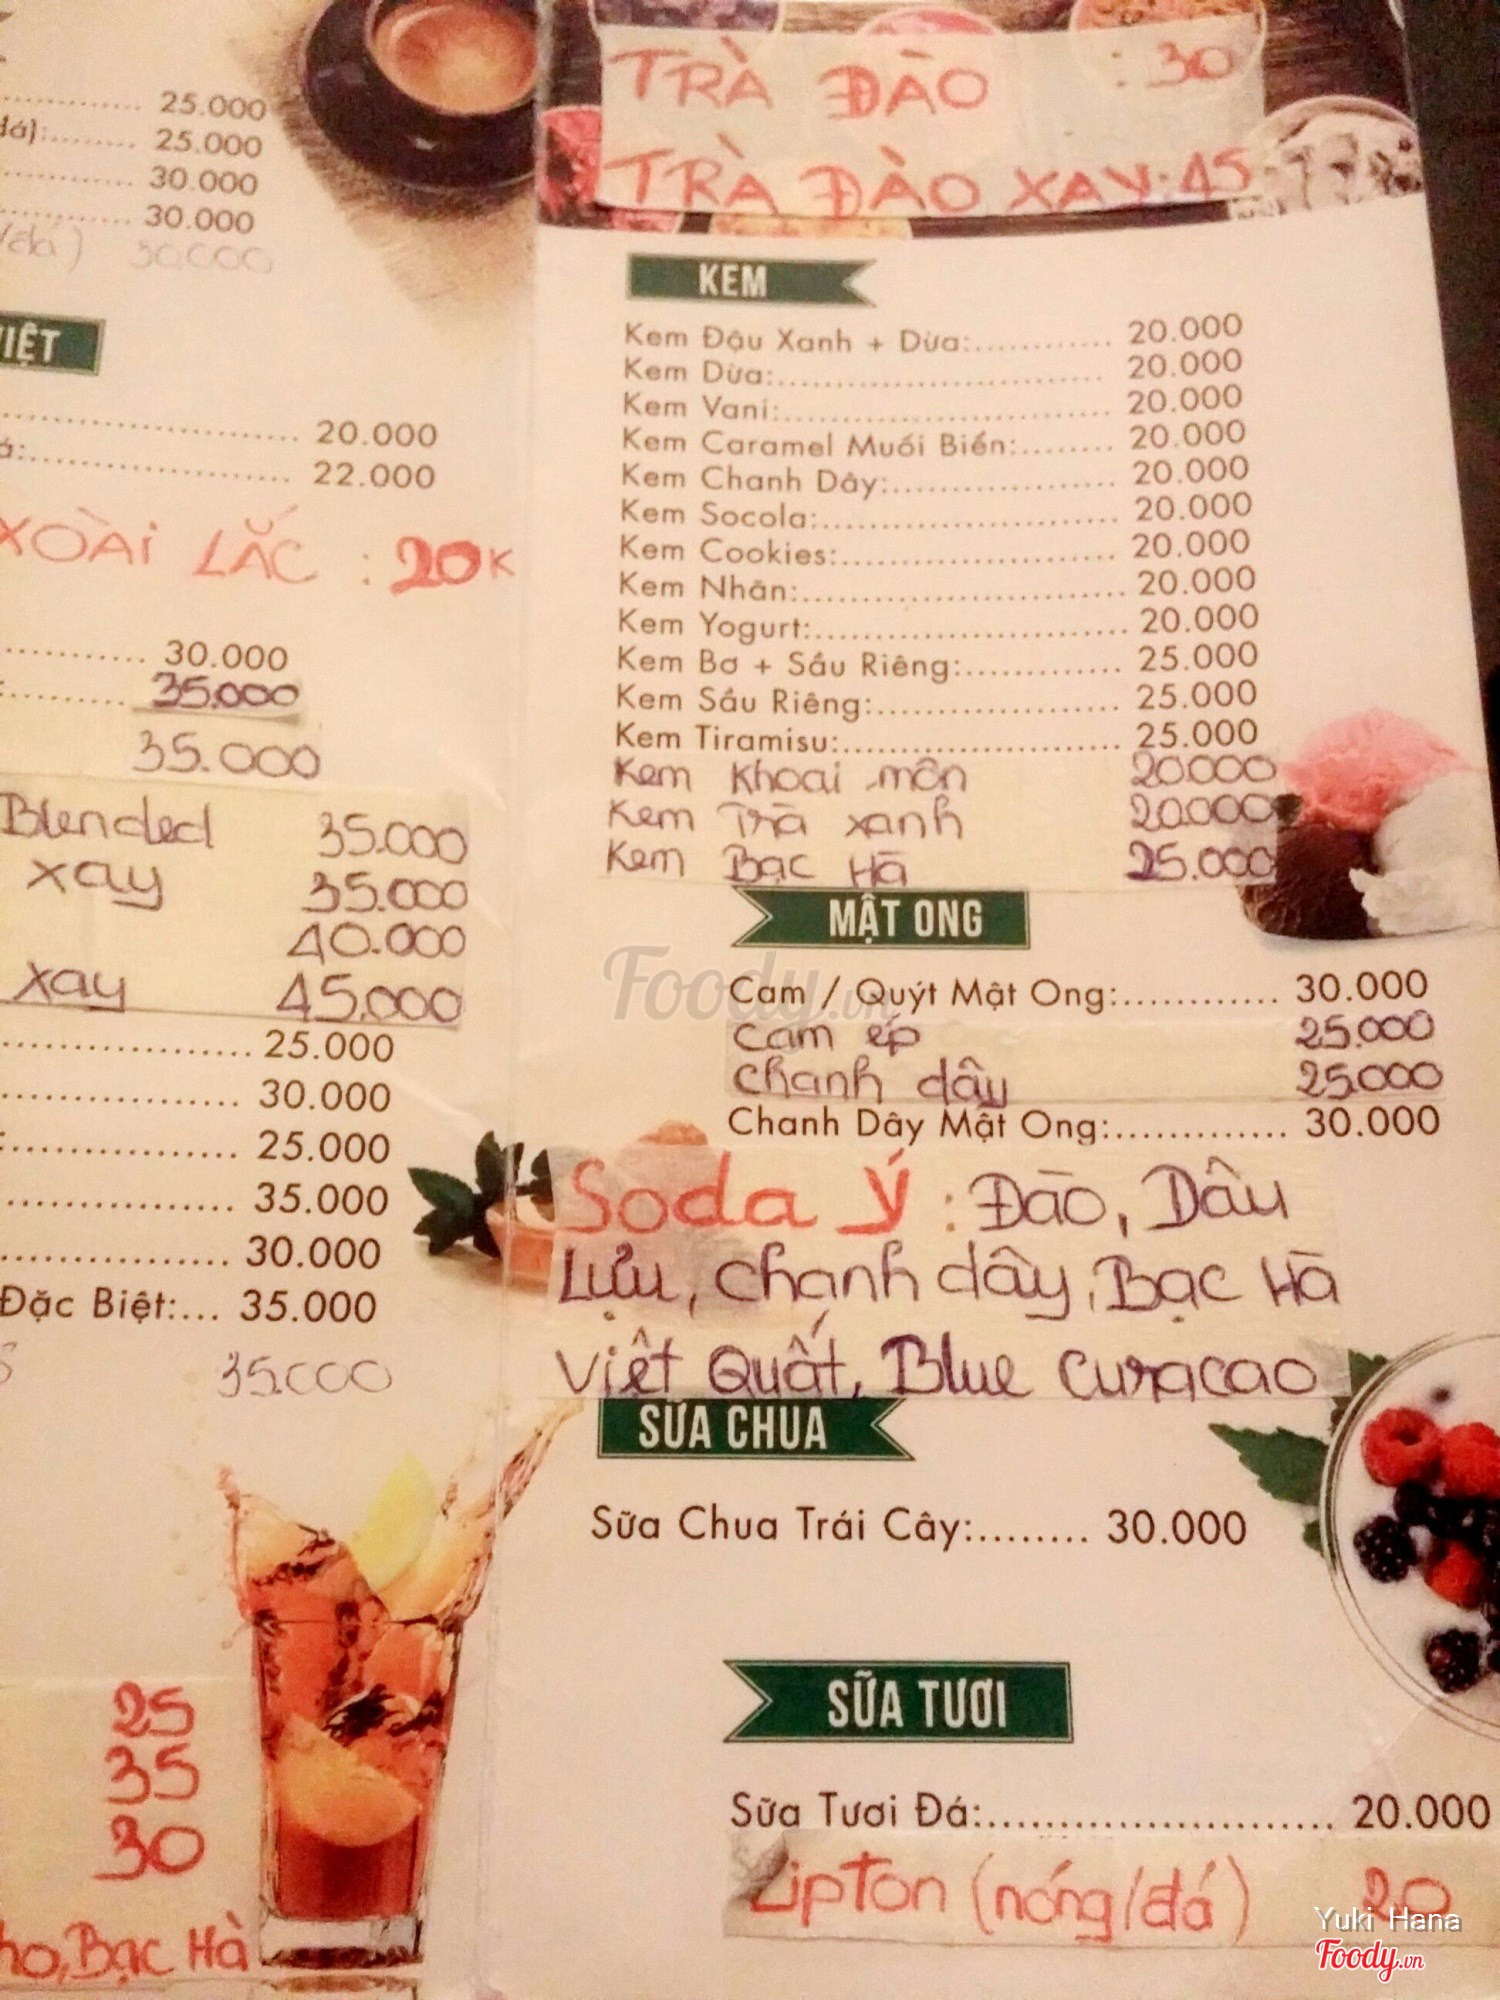 25.000
đá):......... 25.000
30.000
30.000
đá) 30.000
VIỆT
20.000
22.000
XOÀI LẮC : 20K
30.000
35.000
35.000
Blended 35.000
xay 35.000
40.000
xay 45.000
25.000
30.000
25.000
35.000
30.000
Đặc Biệt:... 35.000
35.000
25
35
30
Bạc Hà
TRÀ ĐÀO : 30
TRÀ ĐÀO XAY: 45
KEM
Kem Đậu Xanh + Dừa:............ 20.000
Kem Dừa:............................ 20.000
Kem Vani:............................ 20.000
Kem Caramel Muối Biển:........ 20.000
Kem Chanh Dây:.................... 20.000
Kem Socola:.......................... 20.000
Kem Cookies:........................ 20.000
Kem Nhãn:............................ 20.000
Kem Yogurt:........................... 20.000
Kem Bơ + Sầu Riêng:.............. 25.000
Kem Sầu Riêng:...................... 25.000
Kem Tiramisu:........................ 25.000
Kem Khoai môn 20.000
Kem Trà xanh 20.000
Kem Bạc Hà 25.000
MẬT ONG
Cam / Quýt Mật Ong:............ 30.000
Cam ép 25.000
Chanh dây 25.000
Chanh Dây Mật Ong:............. 30.000
Soda Ý : Đào, Dâu
Lựu, chanh dây, Bạc Hà
Việt Quất, Blue Curacao
SỮA CHUA
Sữa Chua Trái Cây:........ 30.000
SỮA TƯƠI
Sữa Tươi Đá:........................ 20.000
Lipton (nóng/đá) 20
Foody.vn
Yuki Hana
Foody.vn